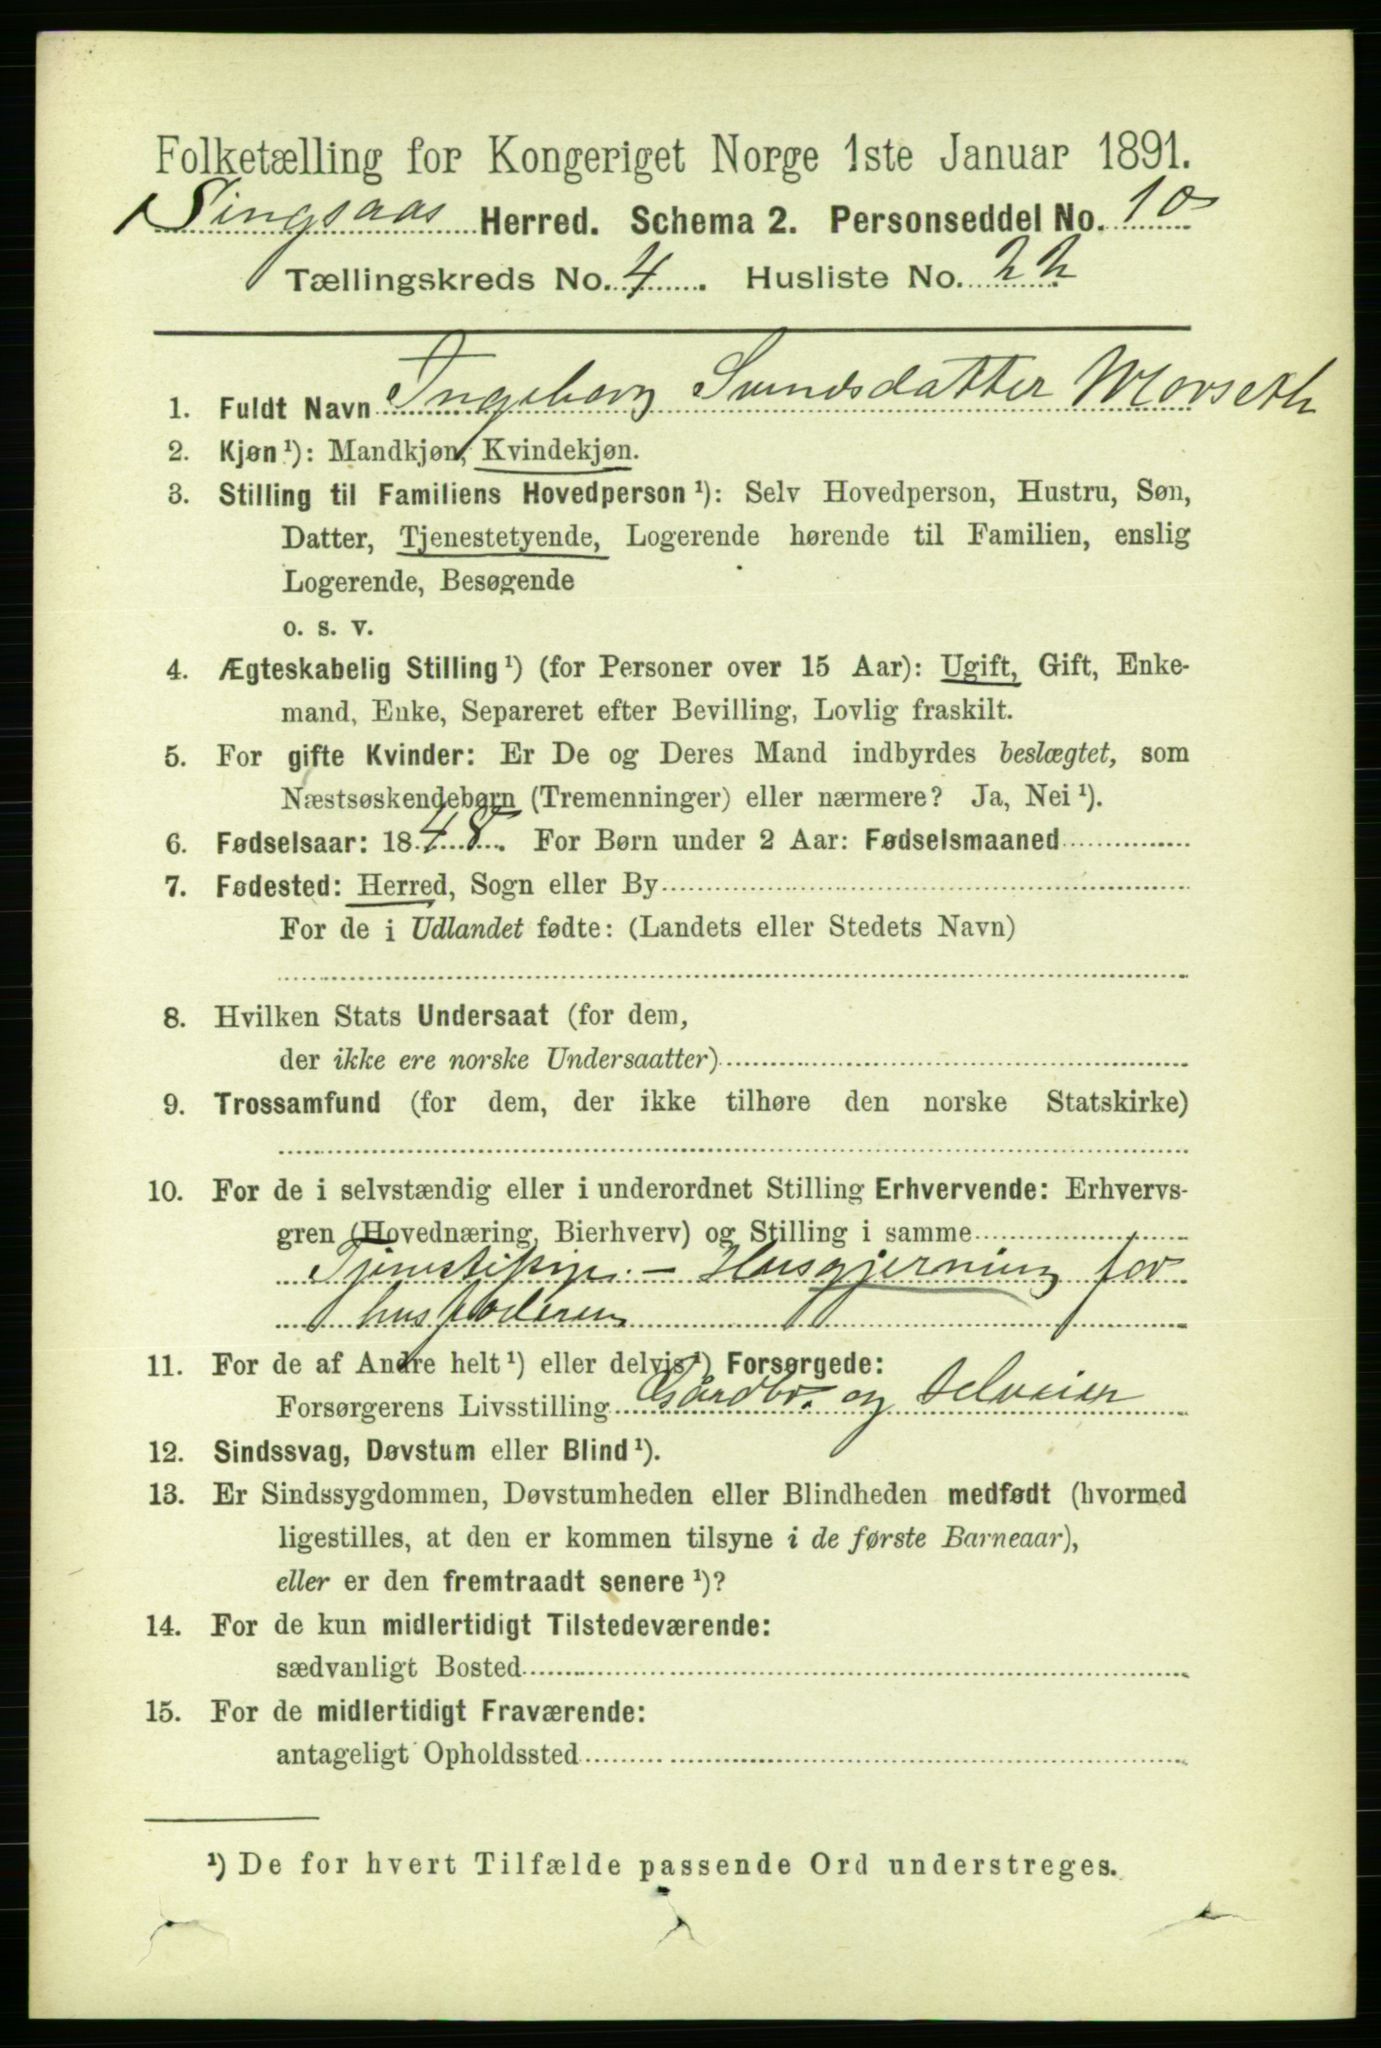 Folketælling for Kongeriget Norge 1ste Januar 1891.
Singsaas Herred. Schema 2. Personseddel No. 10
Tællingskreds No. 4. Husliste No. 22
1. Fuldt Navn Ingeborg Svendsdatter Morseth
2. Kjøn ¹): Mandkjøn, Kvindekjøn.
3. Stilling til Familiens Hovedperson ¹): Selv Hovedperson, Hustru, Søn,
Datter, Tjenestetyende, Logerende hørende til Familien, enslig
Logerende, Besøgende
o. s. v.
4. Ægteskabelig Stilling ¹) (for Personer over 15 Aar): Ugift, Gift, Enke-
mand, Enke, Separeret efter Bevilling, Lovlig fraskilt.
5. For gifte Kvinder: Er De og Deres Mand indbyrdes beslægtet, som
Næstsøskendebørn (Tremenninger) eller nærmere? Ja, Nei ¹).
6. Fødselsaar: 1848. For Børn under 2 Aar: Fødselsmaaned
7. Fødested: Herred, Sogn eller By
For de i Udlandet fødte: (Landets eller Stedets Navn)
8. Hvilken Stats Undersaat (for dem,
der ikke ere norske Undersaatter)
9. Trossamfund (for dem, der ikke tilhøre den norske Statskirke)
10. For de i selvstændig eller i underordnet Stilling Erhvervende: Erhvervs-
gren (Hovednæring, Bierhverv) og Stilling i samme
Tjenestepige. - Husgjerning for
husfaderen
11. For de af Andre helt ¹) eller delvis ¹) Forsørgede:
Forsørgerens Livsstilling Gårdbr. og selveier
12. Sindssvag, Døvstum eller Blind ¹).
13. Er Sindssygdommen, Døvstumheden eller Blindheden medfødt (hvormed
ligestilles, at den er kommen tilsyne i de første Barneaar),
eller er den fremtraadt senere ¹)?
14. For de kun midlertidigt Tilstedeværende:
sædvanligt Bosted
15. For de midlertidigt Fraværende:
antageligt Opholdssted
¹) De for hvert Tilfælde passende Ord understreges.